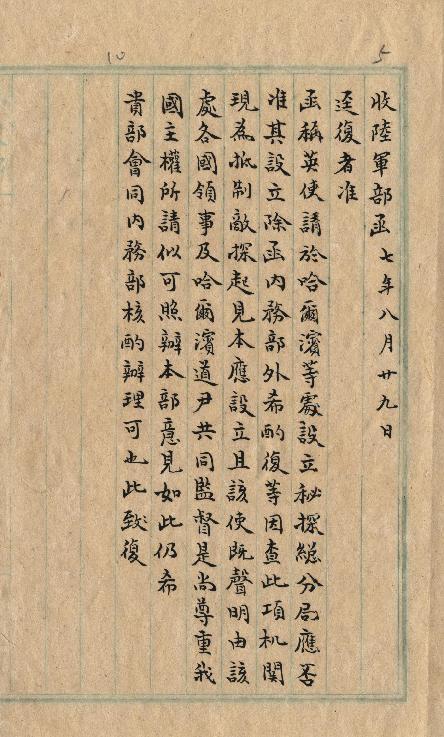 5
10
收陸軍部函七年八月廿九日
逕復者准
函稱英使請於哈爾濱等處設立秘探總分局應否
准其設立除函內務部外希酌復等因查此項机関
現為抵制敵探起見本應設立且該使既聲明由該
處各國領事及哈爾濱道尹共同監督是尚尊重我
國主權所請似可照辦本部意見如此仍希
貴部會同內務部核酌辦理可也此致復